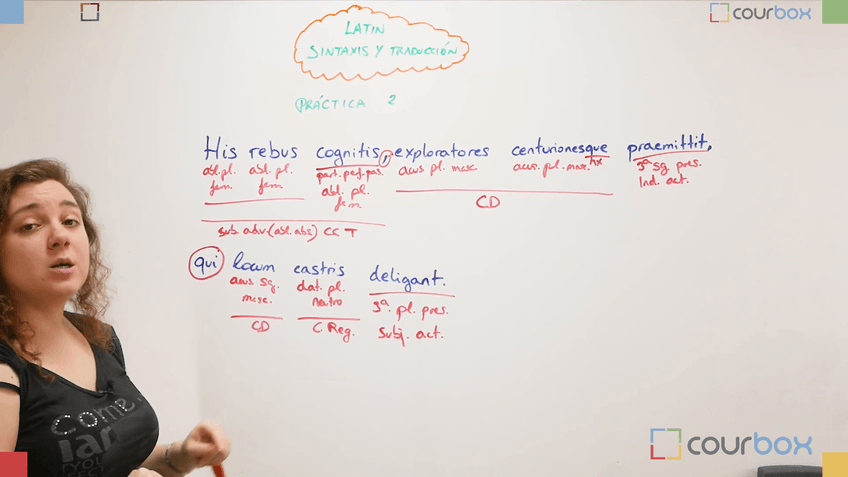 courbox
LATIN
SINTAXIS Y TRADUCCIÓN
PRÁCTICA 2
His rebus cognitis, exploratores centurionesque praemittit,
abl. pl. abl. pl. part. perf. pas. acus pl. masc acus. pl. masc. nx 3ª sg. pres.
fem. fem abl. pl. Ind. act.
fem
CD
sub. adv. (abl. abs.) CCT
qui locum castris deligant.
acus sg. dat. pl. 3ª. pl. pres.
masc. neutro subj. act.
CD C Reg.
Come
YOU
courbox